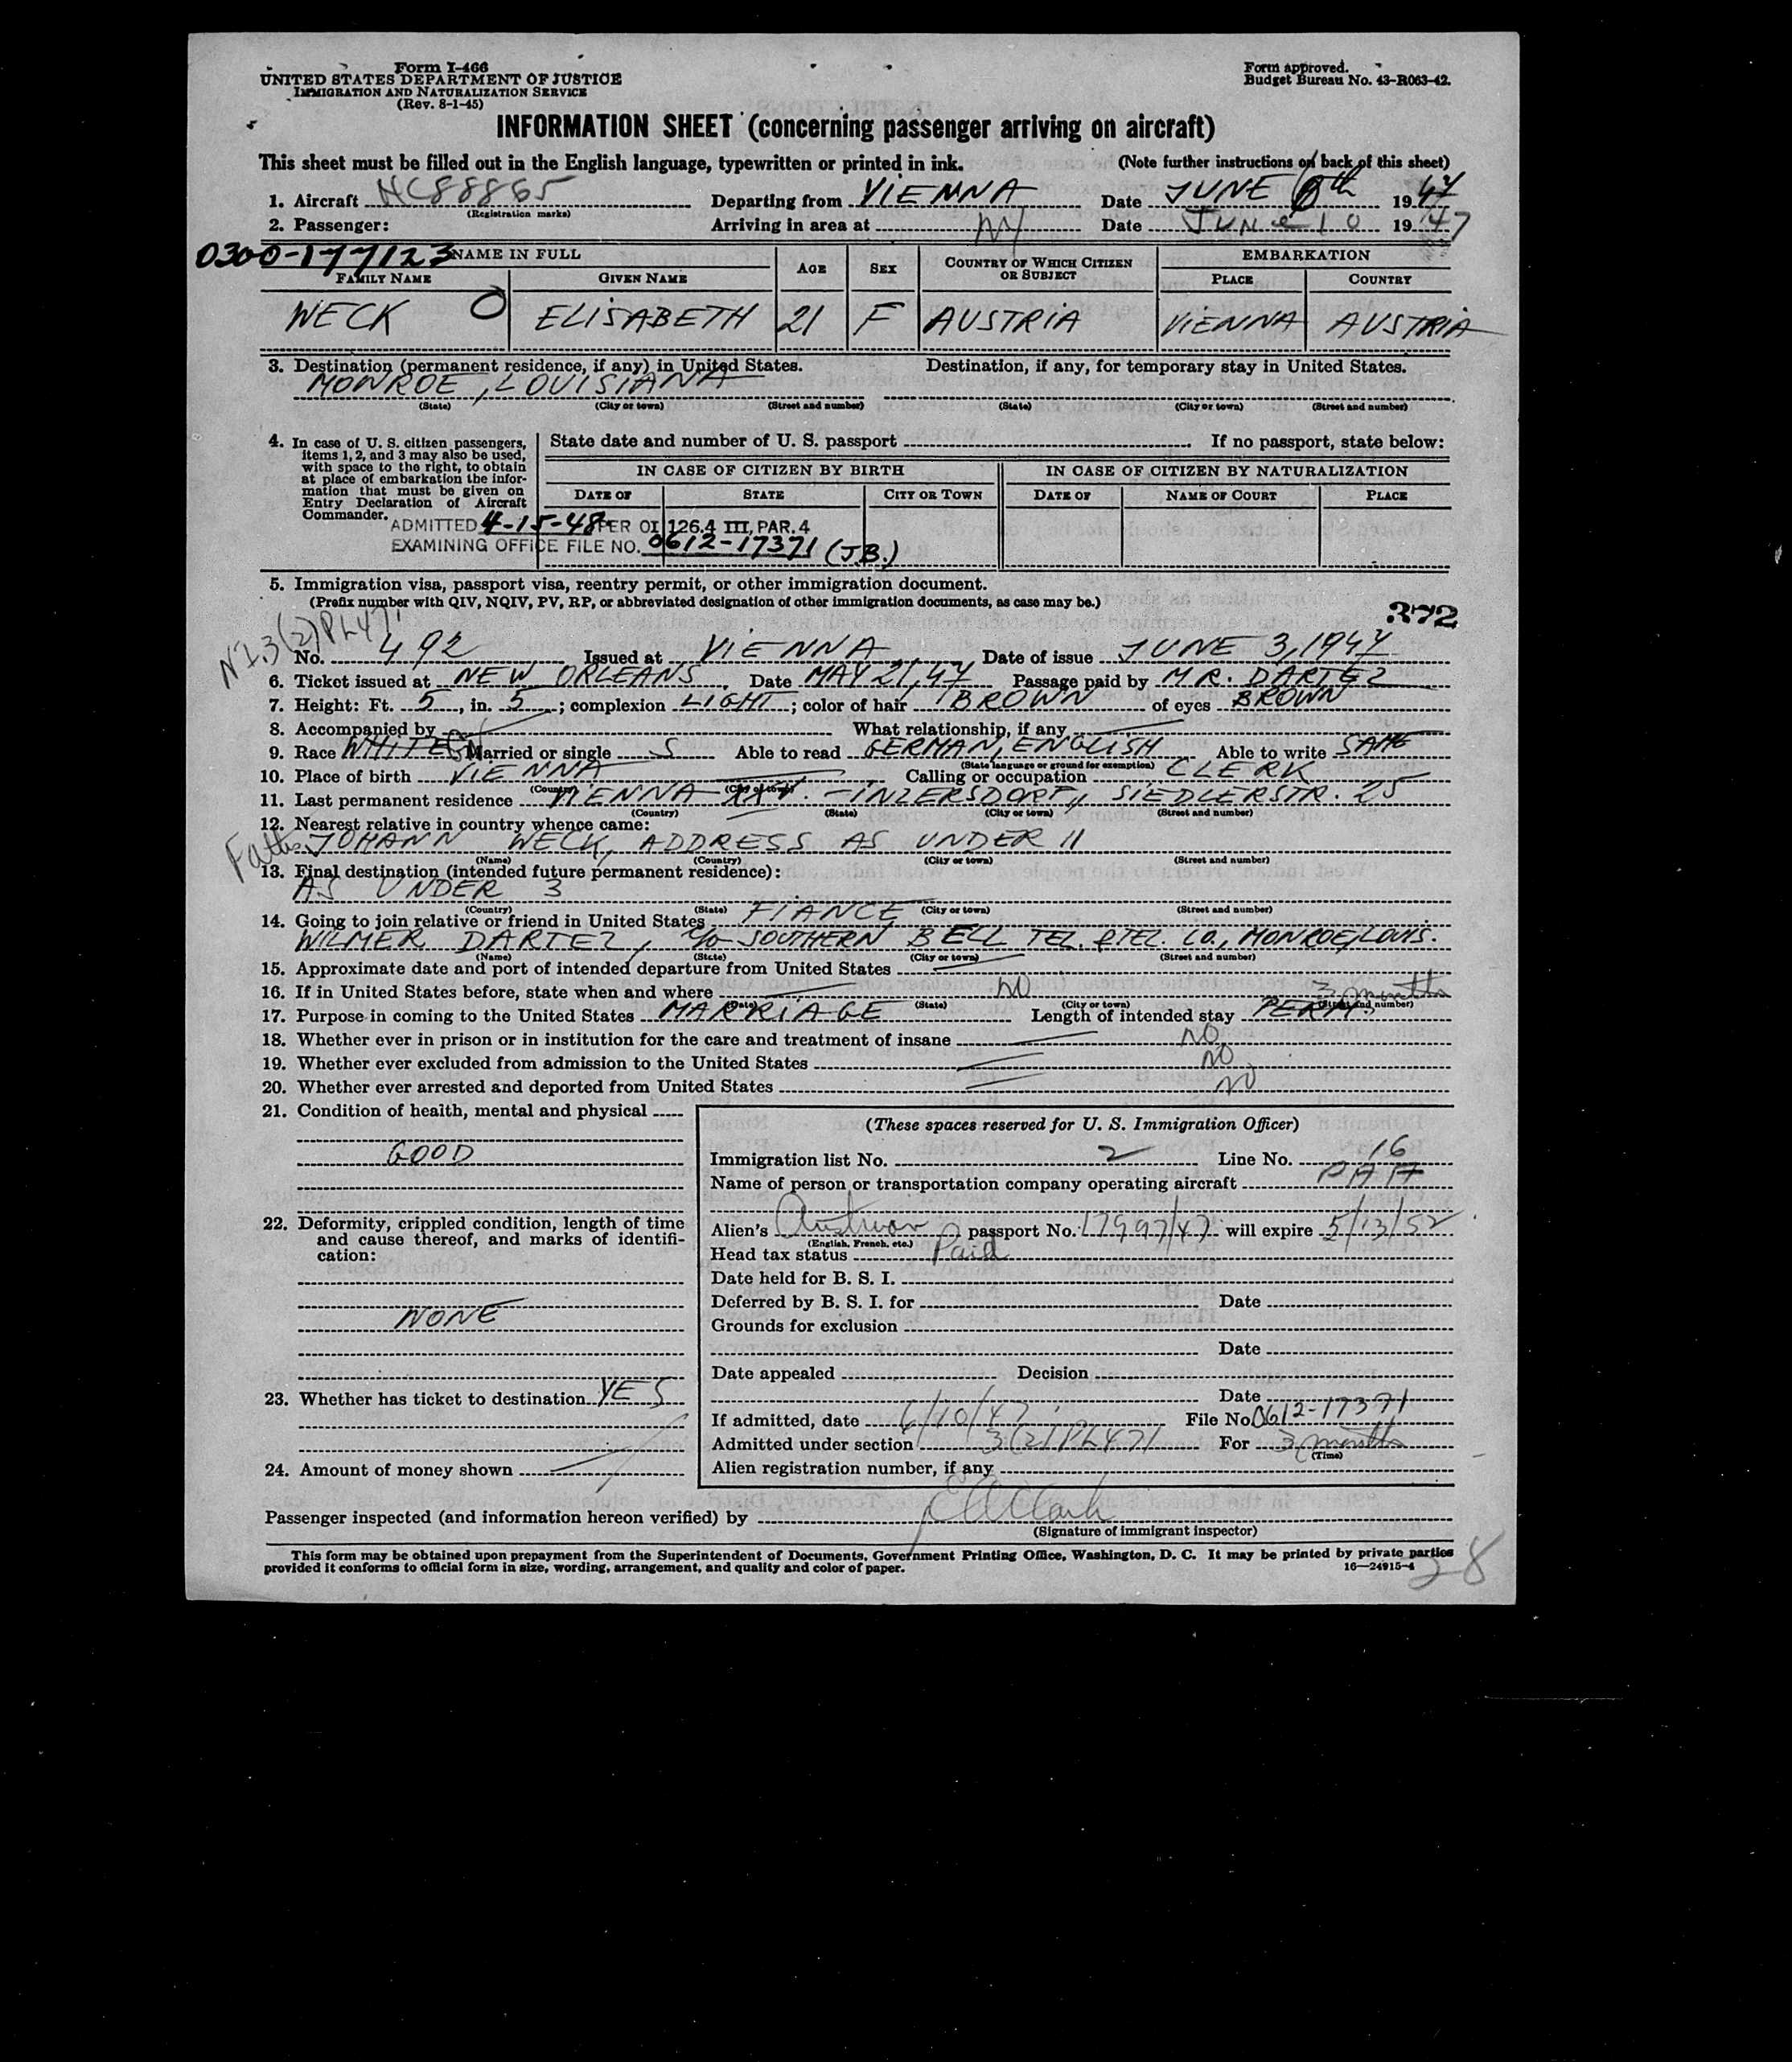 Form I-466
UNITED STATES DEPARTMENT OF JUSTICE
IMMIGRATION AND NATURALIZATION SERVICE
(Rev. 8-1-45)
Form approved.
Budget Bureau No. 43-R063-42.
INFORMATION SHEET (concerning passenger arriving on aircraft)
This sheet must be filled out in the English language, typewritten or printed in ink. (Note further instructions on back of this sheet)
1. Aircraft NC88865 Departing from VIENNA Date JUNE 8th 1947
(Registration marks)
2. Passenger: Arriving in area at NY Date June 10 1947
0300-177123
NAME IN FULL
FAMILY NAME GIVEN NAME AGE SEX COUNTRY OF WHICH CITIZEN OR SUBJECT EMBARKATION PLACE COUNTRY
WECK ELISABETH 21 F AUSTRIA VIENNA AUSTRIA
3. Destination (permanent residence, if any) in United States. Destination, if any, for temporary stay in United States.
MONROE, LOUISIANA
(State) (City or town) (Street and number) (State) (City or town) (Street and number)
4. In case of U. S. citizen passengers,
items 1, 2, and 3 may also be used,
with space to the right, to obtain
at place of embarkation the infor-
mation that must be given on
Entry Declaration of Aircraft
Commander.
State date and number of U. S. passport If no passport, state below:
IN CASE OF CITIZEN BY BIRTH IN CASE OF CITIZEN BY NATURALIZATION
DATE OF STATE CITY OR TOWN DATE OF NAME OF COURT PLACE
ADMITTED 4-15-48 PER OI 126.4 III, PAR. 4
EXAMINING OFFICE FILE NO. 0612-17371 (J.B.)
5. Immigration visa, passport visa, reentry permit, or other immigration document.
(Prefix number with QIV, NQIV, PV, RP, or abbreviated designation of other immigration documents, as case may be.)
372
NI.3(2)PL471
No. 492 Issued at VIENNA Date of issue JUNE 3, 1947
6. Ticket issued at NEW ORLEANS, Date MAY 21, 47 Passage paid by MR. DARTEZ
7. Height: Ft. 5, in. 5; complexion LIGHT; color of hair BROWN of eyes BROWN
8. Accompanied by What relationship, if any
9. Race WHITE Married or single S Able to read GERMAN, ENGLISH Able to write SAME
(State language or ground for exemption)
10. Place of birth VIENNA Calling or occupation CLERK
(Country) (City or town)
11. Last permanent residence VIENNA XXV. - INZERSDORF, SIEDLERSTR. 25
(Country) (State) (City or town) (Street and number)
12. Nearest relative in country whence came:
Father JOHANN WECK, ADDRESS AS UNDER 11
(Name) (Country) (City or town) (Street and number)
13. Final destination (intended future permanent residence):
AS UNDER 3
(Country) (State) (City or town) (Street and number)
14. Going to join relative or friend in United States FIANCE
WILMER DARTEZ, c/o SOUTHERN BELL TEL. & TEL. CO., MONROE, LOUIS.
(Name) (State) (City or town) (Street and number)
15. Approximate date and port of intended departure from United States
16. If in United States before, state when and where NO
(Date) (State) (City or town) (Street and number)
3 months
17. Purpose in coming to the United States MARRIAGE Length of intended stay PERM.
18. Whether ever in prison or in institution for the care and treatment of insane NO
19. Whether ever excluded from admission to the United States NO
20. Whether ever arrested and deported from United States NO
21. Condition of health, mental and physical
GOOD
22. Deformity, crippled condition, length of time
and cause thereof, and marks of identifi-
cation:
NONE
23. Whether has ticket to destination YES
24. Amount of money shown
(These spaces reserved for U. S. Immigration Officer)
Immigration list No. 2 Line No. 16
Name of person or transportation company operating aircraft PAA
Alien's Austrian passport No. 17997/47 will expire 5/13/52
(English, French, etc.)
Head tax status Paid
Date held for B. S. I.
Deferred by B. S. I. for Date
Grounds for exclusion
Date
Date appealed Decision
Date
If admitted, date 6/10/47 File No. 0612-17371
Admitted under section 3(2) PL471 For 3 months
(Time)
Alien registration number, if any
Passenger inspected (and information hereon verified) by
(Signature of immigrant inspector)
This form may be obtained upon prepayment from the Superintendent of Documents, Government Printing Office, Washington, D. C. It may be printed by private parties
provided it conforms to official form in size, wording, arrangement, and quality and color of paper. 16—24915-4
28